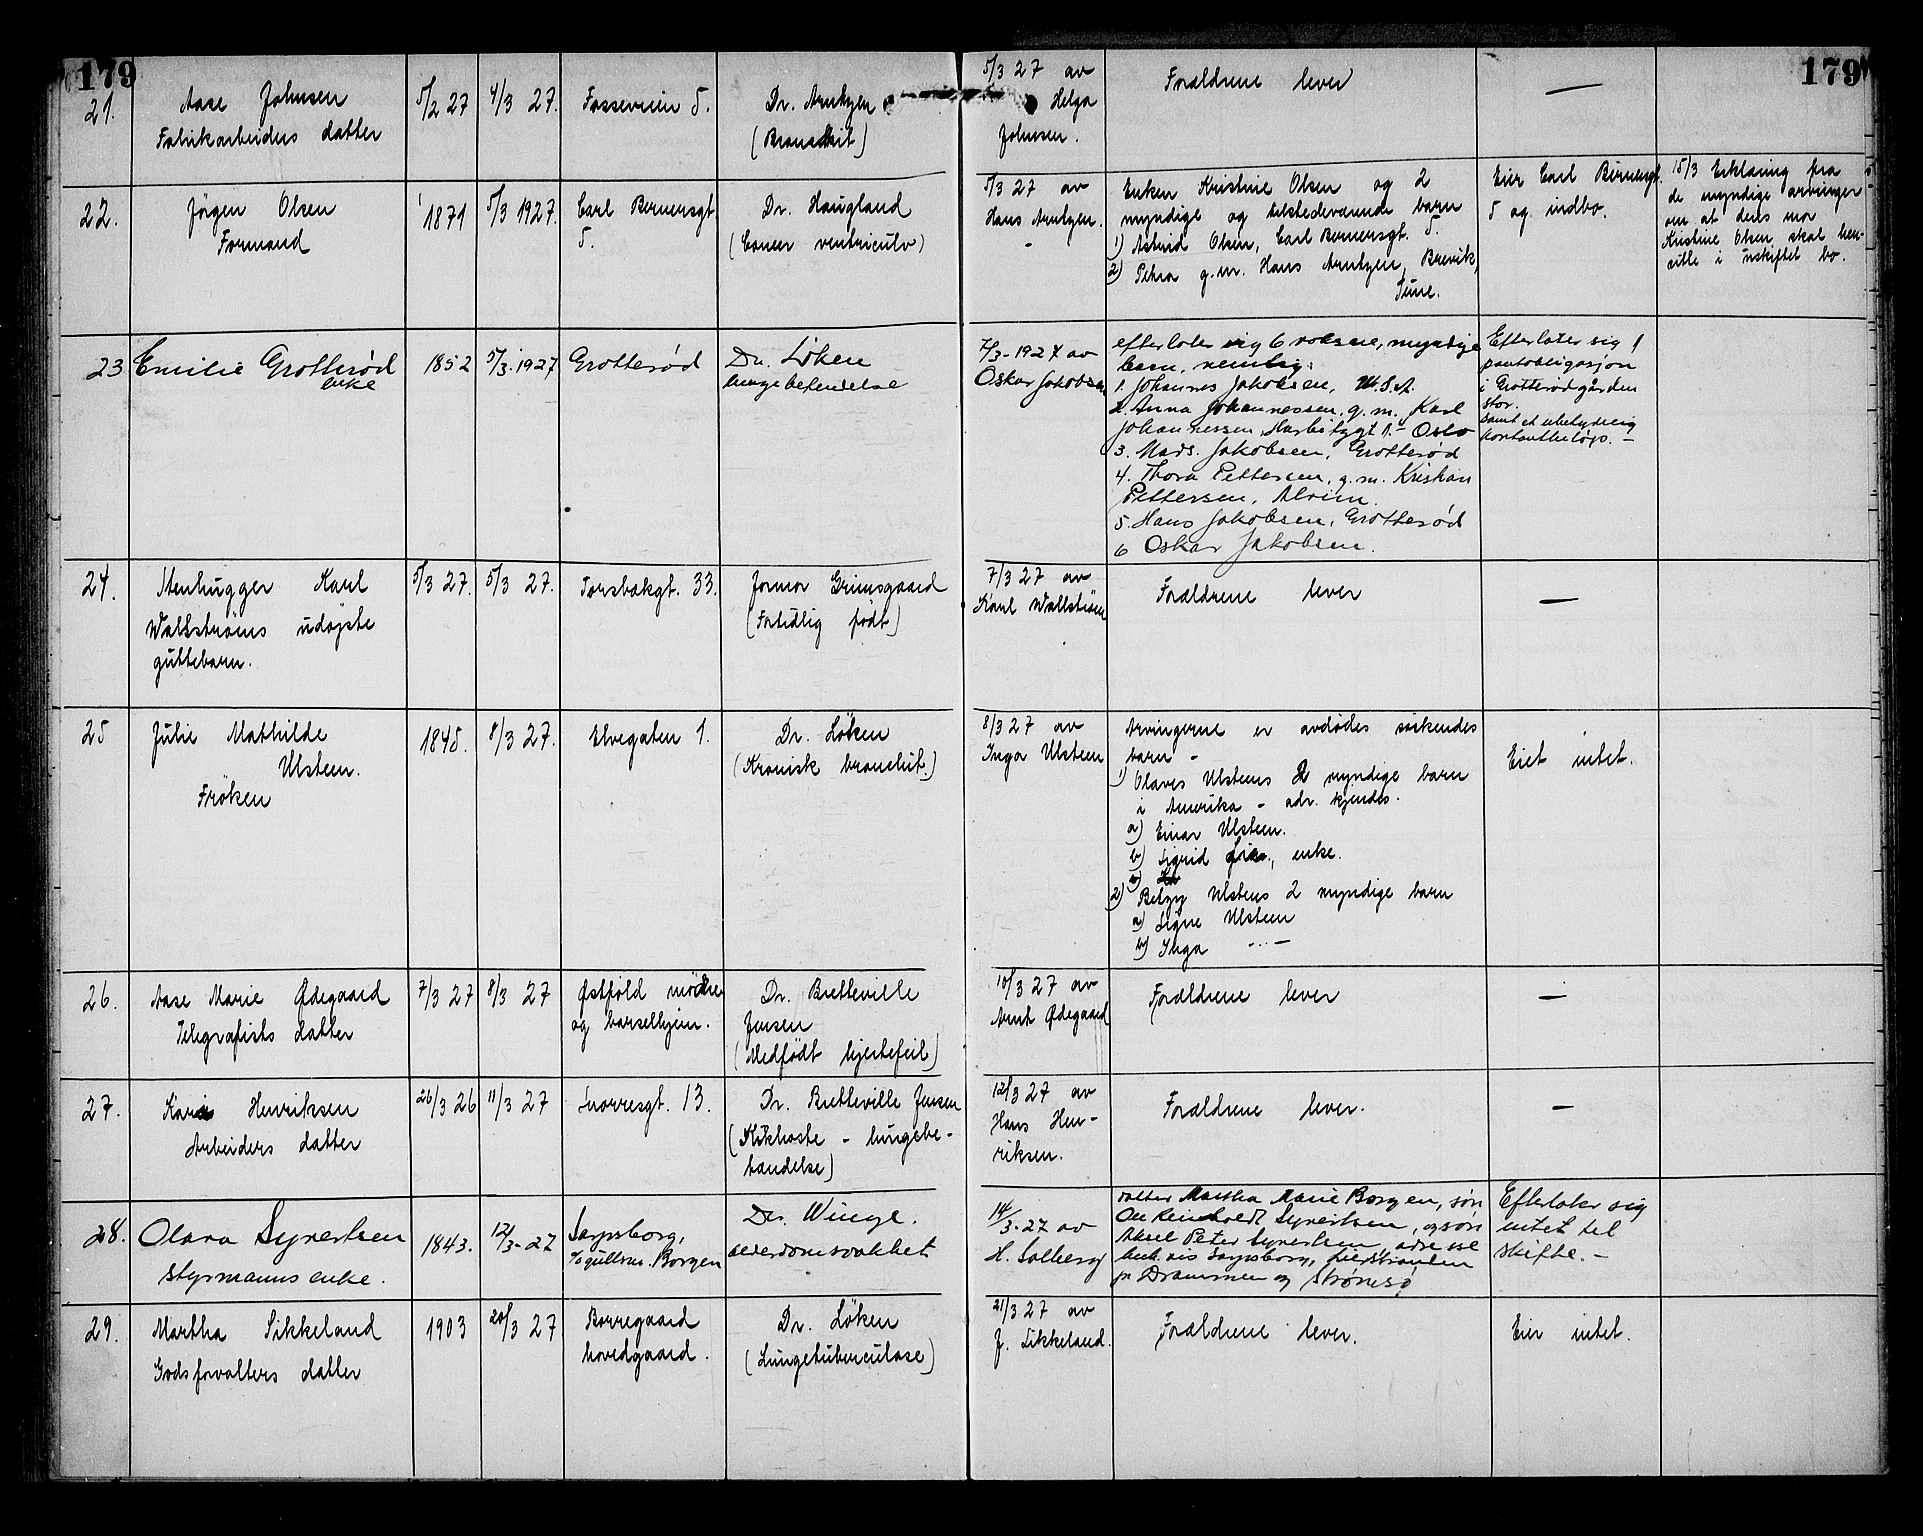 179
179
21.
Aase Johnsen
Fabrikarbeiders datter
5/2 27
4/3 27.
Fosseveien 5.
Dr. Arntzen
(Bronschit)
5/3 27 av
Helga
Johnsen.
Forældrene lever
—
22.
Jörgen Olsen
Formand
1871
5/3 1927.
Carl Bernersgt.
5.
Dr. Haugland
(Cancer ventriculo)
5/3 27 av
Hans Arntzen.
Enken Kristine Olsen og 2
myndige og tilstedeværende barn
1) Astrid Olsen, Carl Bernersgt. 5.
2) Petra g.m. Hans Arntzen, Brevik,
Tune.
Eier Carl Bernersgt.
5 og indbo.
15/3 Erklæring fra
de myndige arvinger
om at deres mor
Kristine Olsen skal hen-
sitte i uskiftet bo.
23
Emilie Grotterød
enke
1852
5/3.1927
Grotterød
Dr. Löken
lungebetendelse
7/3-1927 av
Oskar Jakobsen
efterlater sig 6 voksne, myndige
barn, nemlig:
1. Johannes Jakobsen, U.S.A.
2. Anna Johannessen, g.m. Karl
Johannessen, Harbitzgt 1. Oslo
3. Mads. Jakobsen, Grotterød
4. Thora Pettersen, g.m. Kristian
Pettersen, Alvim.
5. Hans Jakobsen, Grotterød
6 Oskar Jakobsen.
Efterlater sig 1
pantobligasjon
i Grotterødgården
stor.
samt et ubetydelig
kontantbeløp. —
24.
Stenhugger Karl
Wallströms udøpte
guttebarn.
5/3 27.
5/3 27.
Torsbakgt. 33.
Jormor Grimsgaard
(Fortidlig født)
7/3 27 av
Karl Wallström
Forældrene lever
—
25
Julie Mathilde
Ulsteen.
Fröken
1845.
8/3 27.
Elvegaten 1.
Dr. Löken
(Kronisk bronchit.)
8/3 27 av
Inga Ulsteen
Arvingerne er avdødes søskendes
barn -
1) Olaves Ulsteens 2 myndige barn
i Amerika - adr. kjendes.
a) Einar Ulsteen.
b) Sigrid Lie, enke.
2) Betzy Ulsteens 2 myndige barn
a) Signe Ulsteen
b) Inga —"—
Eiet intet.
26.
Aase Marie Ødegaard
Telegrafists datter
7/3 27
8/3 27
Østfold mødre
og barselhjem.
Dr. Bretteville
Jensen
(Medfödt hjertefeil)
10/3 27 av
Arnt Ødegaard
Forældrene lever
—
27.
Kari Henriksen
Arbeiders datter
26/3 26
11/3 27
Snorresgt. 13.
Dr. Bretteville Jensen
(Kikhoste - lungebe-
tændelse)
12/3 27 av
Hans Hen-
riksen.
Forældrene lever.
—
28.
Olava Syvertsen
styrmanns enke.
1843.
12/3-27
Sarpsborg,
Borgen
Dr. Winge.
alderdomssvakhet
14/3-27 av
H. Solberg
datter Martha Marie Borgen, søn
Ole Reinholdt Syvertsen, og søn
Aksel Peter Syvertsen, adresse
hhv. Sarpsborg, Lierstranden
pr Drammen og Strømsø
Efterlater sig
intet til
skifte. —
29.
Martha Sikkeland
Godsforvalters datter
1903
20/3 27
Borregaard
hovedgaard.
Dr. Löken
(Lungetuberculose)
21/3 27 av
J. Sikkeland.
Forældrene lever.
Eier intet.